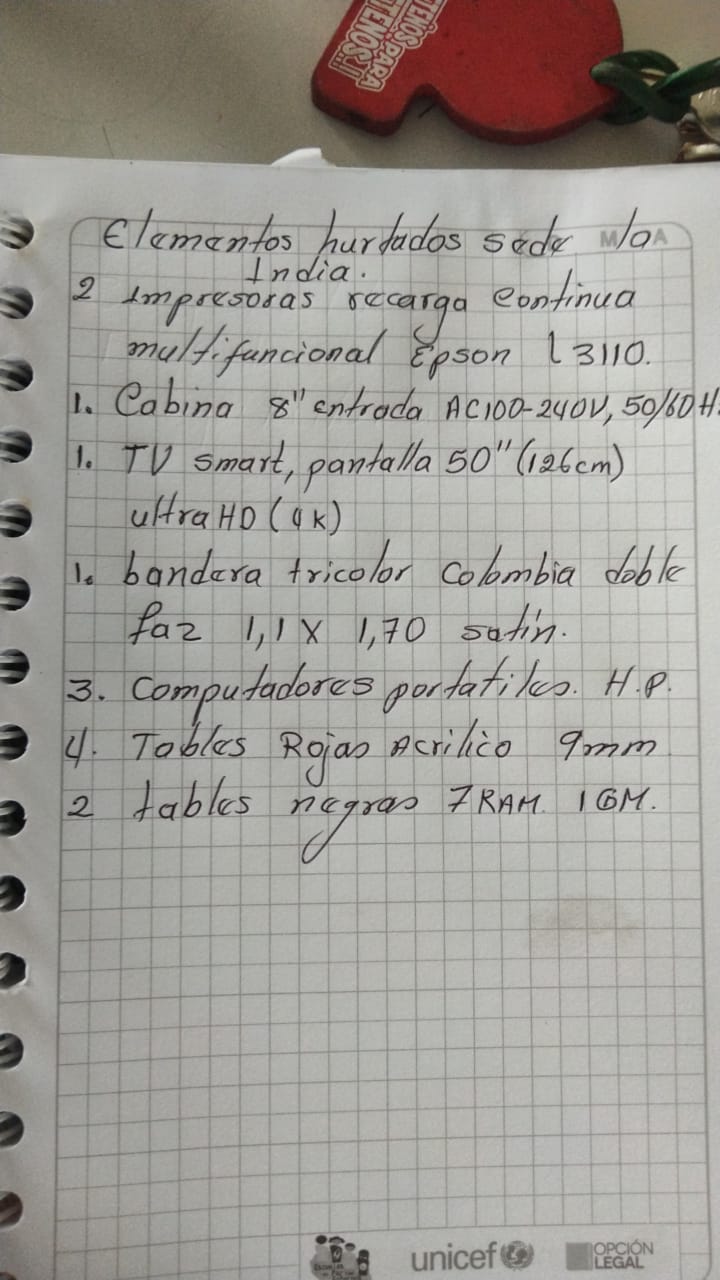 TEÑOS PARA
TENOS!!
Elementos hurtados sede la
M A
India.
2 Impresoras recarga continua
multifuncional Epson L3110.
1. Cabina 8" entrada AC100-240V, 50/60H
1. TV smart, pantalla 50" (126cm)
ultra HD (4K)
1. bandera tricolor Colombia doble
faz 1,1 X 1,70 satín.
3. Computadores portatiles. H.P.
4. Tables Rojas Acrilico 9mm
2 tables negras 7 RAM. 1GM.
unicef
OPCIÓN
LEGAL